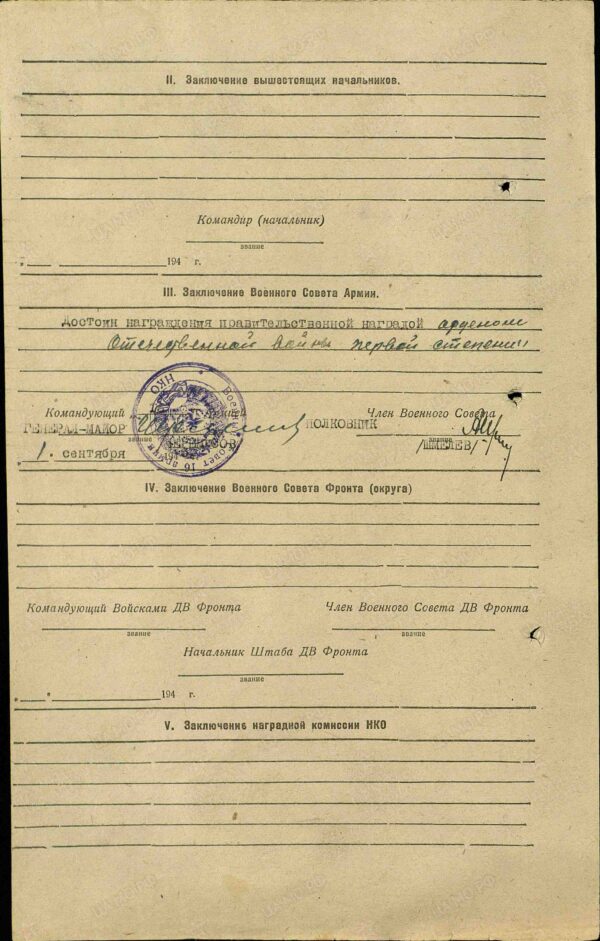 II. Заключение вышестоящих начальников.
Командир (начальник)
звание
194 г.
III. Заключение Военного Совета Армии.
Достоин награждения правительственной наградой орденом
Отечественной войны первой степени
Командующий Армией Член Военного Совета
ГЕНЕРАЛ-МАЙОР ПОЛКОВНИК
звание звание
/ШМЕЛЕВ/
1. сентября
НКО Военный Совет 16 армии
IV. Заключение Военного Совета Фронта (округа)
Командующий Войсками ДВ Фронта Член Военного Совета ДВ Фронта
звание звание
Начальник Штаба ДВ Фронта
звание
194 г.
V. Заключение наградной комиссии НКО